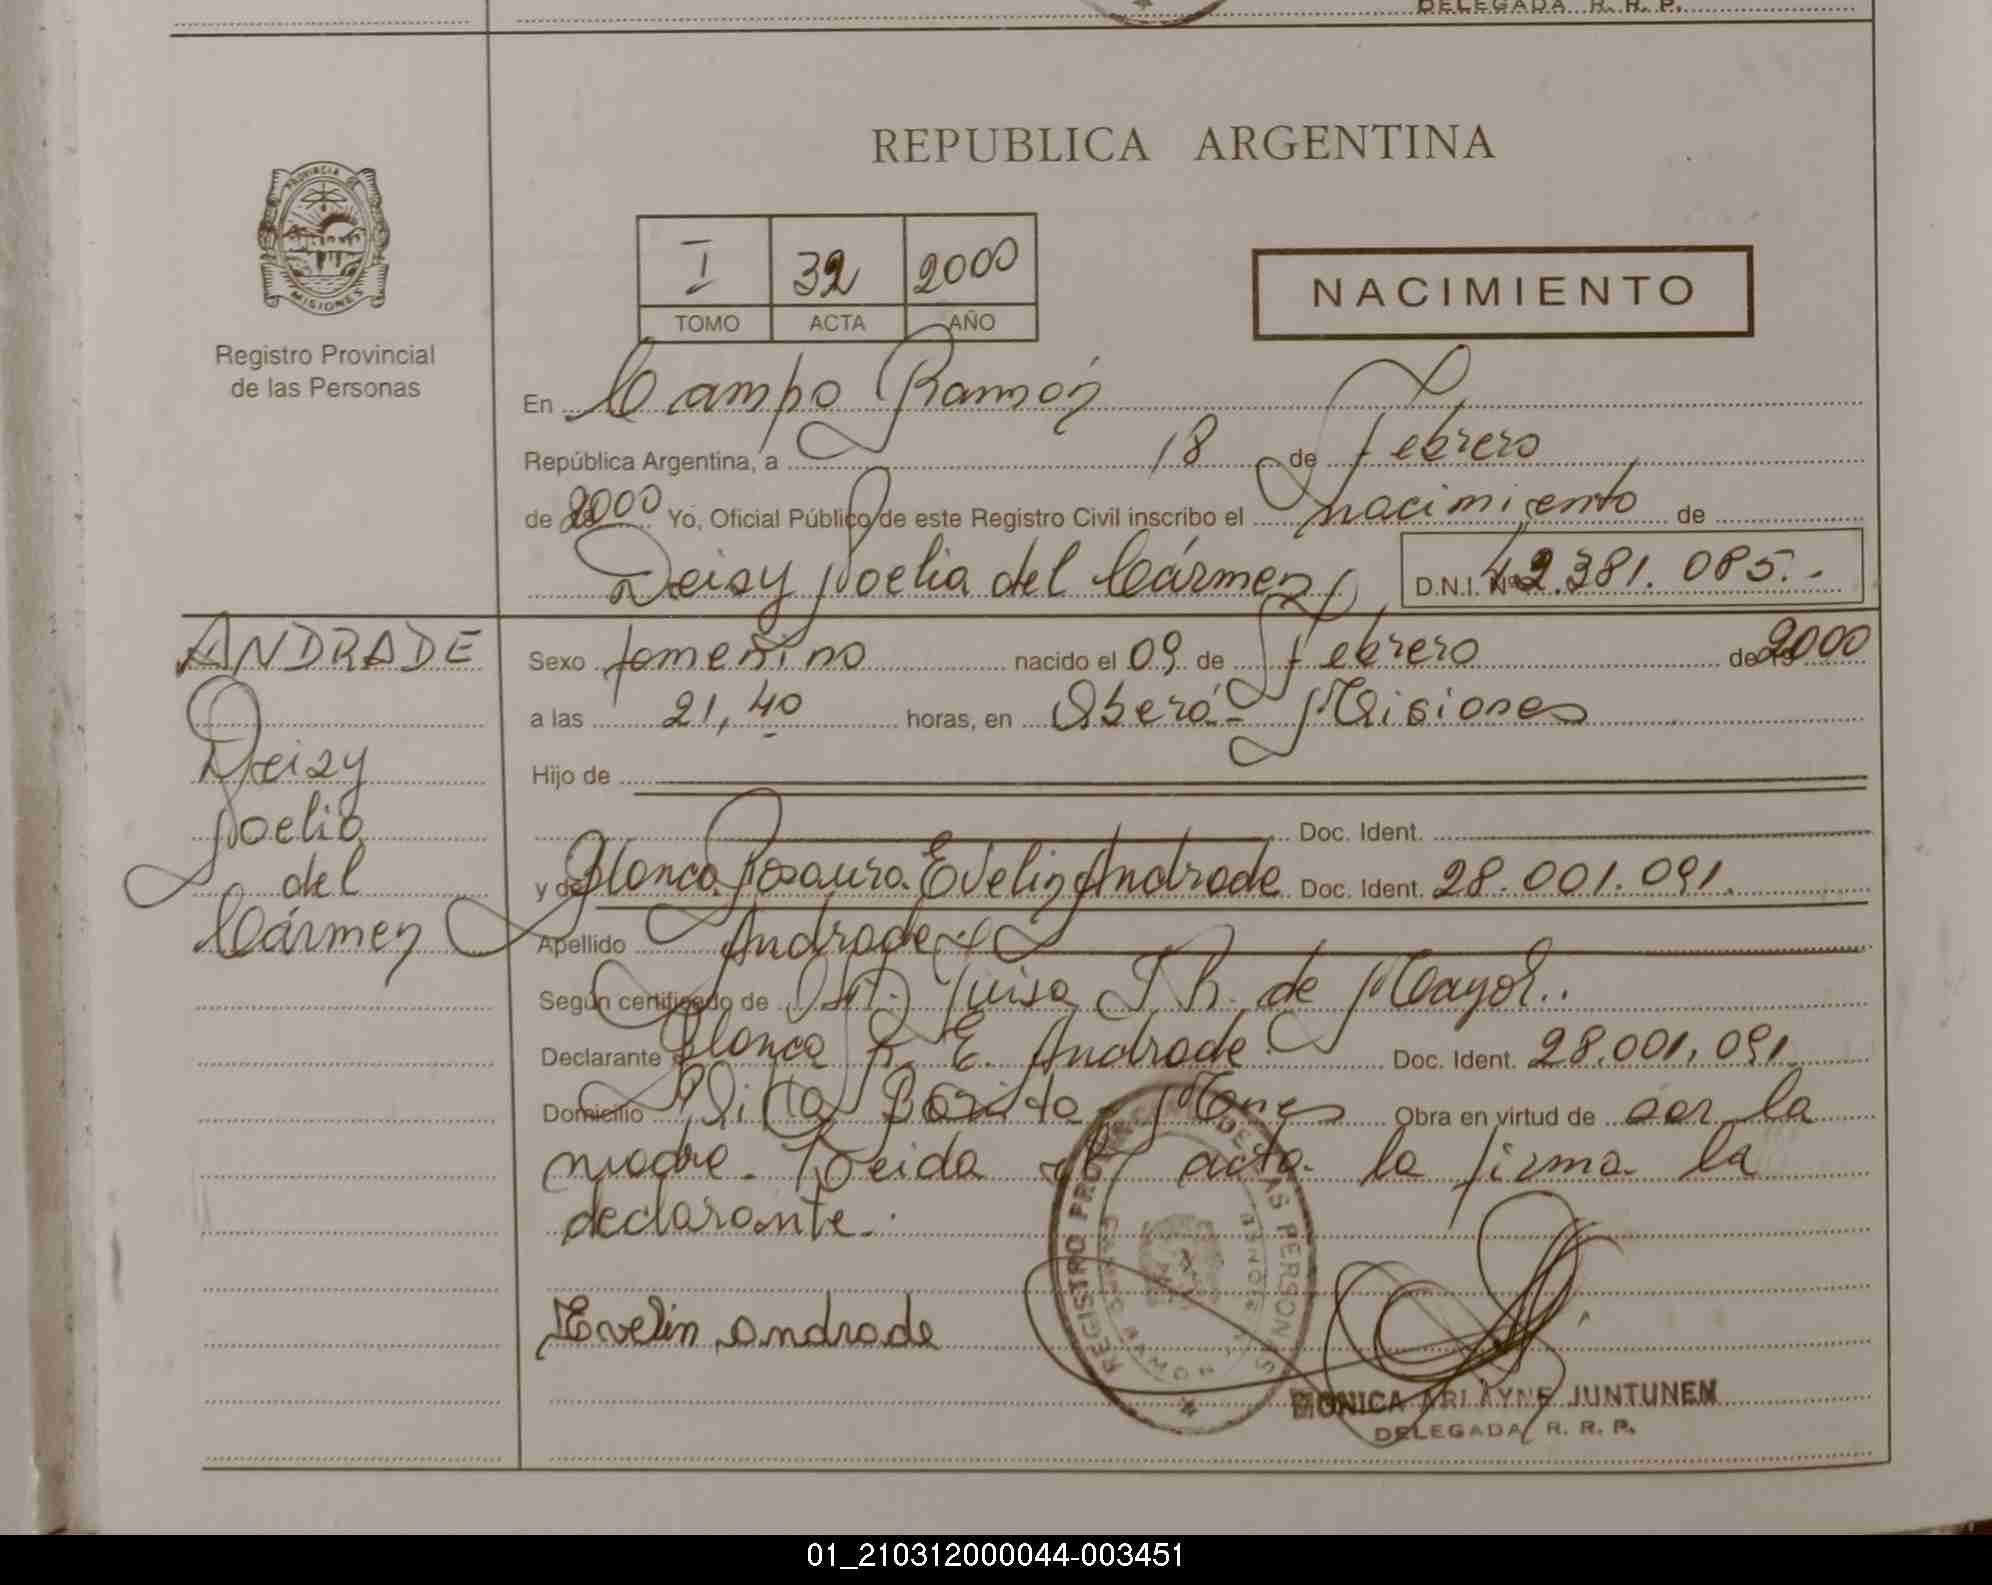 DELEGADA R. R. P.
REPUBLICA ARGENTINA
PROVINCIA DE
MISIONES
Registro Provincial
de las Personas
I 32 2000
TOMO ACTA AÑO
NACIMIENTO
En Campo Ramón
República Argentina, a 18 de Febrero
de 2000 Yo, Oficial Público de este Registro Civil inscribo el nacimiento de
Deisy Noelia del Cármen D.N.I. Nº 42.381.085.-
ANDRADE
Deisy
Noelia
del
Cármen
Sexo femenino nacido el 09 de Febrero de 2000
a las 21,40 horas, en Oberá - Misiones
Hijo de
Doc. Ident.
y de Blanca Rosaura Evelin Andrade Doc. Ident. 28.001.091.
Apellido Andrade
Según certificado de Luisa de Mayol..
Declarante Blanca R. E. Andrade Doc. Ident. 28.001.091
Domicilio Villa Bonita - Mnes Obra en virtud de ser la
madre. Leida el acta la firma la
declarante.
Evelin Andrade
REGISTRO PROVINCIAL DE LAS PERSONAS
CAMPO RAMON MISIONES
MONICA ARLAYNE JUNTUNEN
DELEGADA R. R. P.
01_210312000044-003451